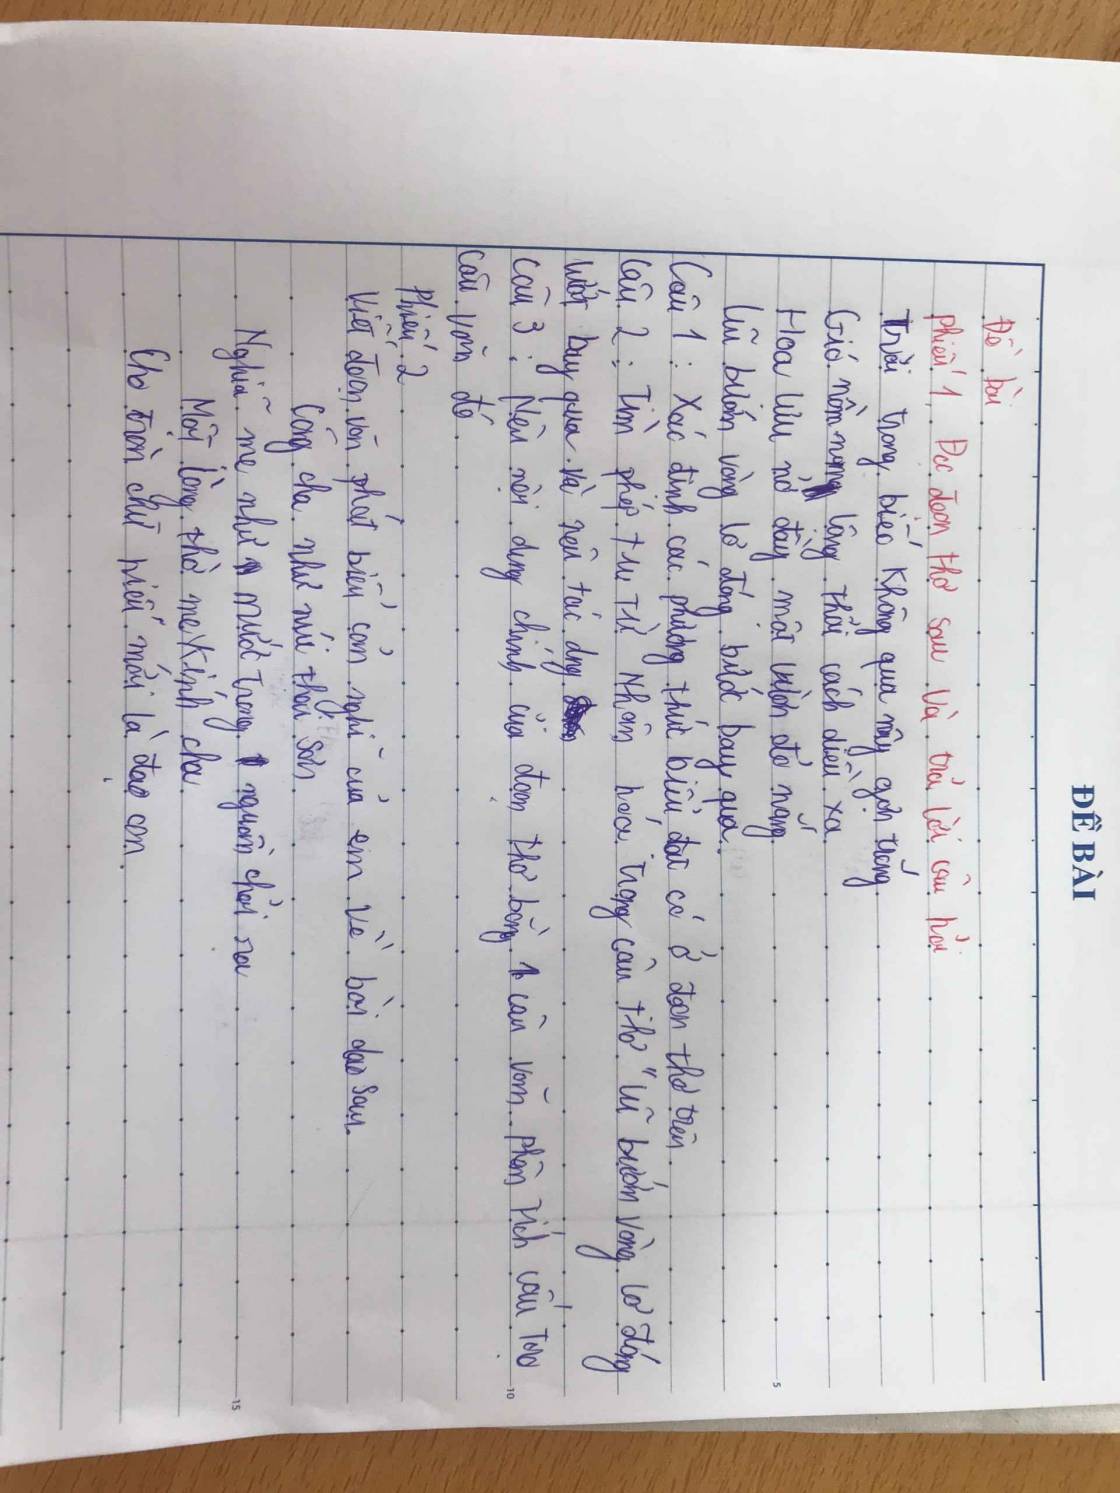 ĐỀ BÀI
Đề bài
phiếu 1. Đọc đoạn thơ sau và trả lời câu hỏi
Trời trong biếc không qua mây gợn trắng
Gió nồm nam lộng thổi cánh diều xa
Hoa lựu nở đầy một vườn đỏ nắng
Lũ bướm vàng lơ đãng lướt bay qua.
Câu 1: Xác định các phương thức biểu đạt có ở đoạn thơ trên
Câu 2: Tìm phép tu từ nhân hoá trong câu thơ "lũ bướm vàng lơ đãng
lướt bay qua và nêu tác dụng
câu 3: Nêu nội dung chính của đoạn thơ bằng 1 câu văn. phân tích cấu tạo
câu văn đó
phiếu 2
Viết đoạn văn phát biểu cảm nghĩ của em về bài dao sau.
Công cha như núi thái Sơn
Nghĩa mẹ như nước trong nguồn chảy ra
Một lòng thờ mẹ kính cha
Cho tròn chữ hiếu mới là đạo con
5
10
15